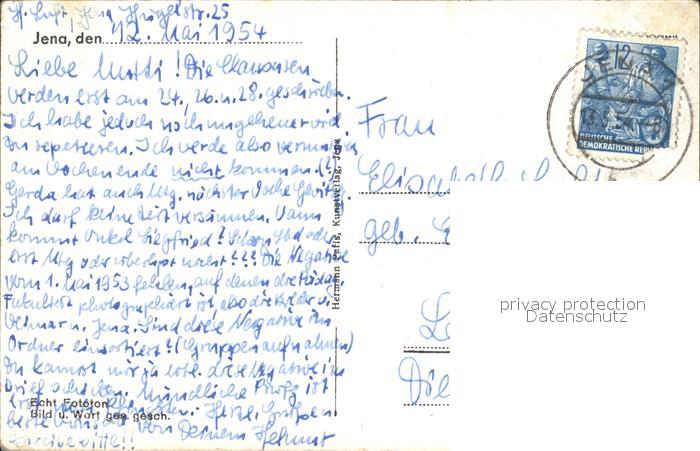 Jena, den 12. Mai 1954
Liebe Mutti! Die Klausuren
werden erst am 24., 26. u. 28. geschrieben.
Ich habe jedoch noch ungeheuer viel
zu repetieren. Ich werde also vermutlich
am Wochenende nicht kommen. (?)
Gerda hat auch Mtg. nächster Woche
Ich darf keine Zeit versäumen. Wann
kommt Onkel Siegfried? oder
erst Mtg oder überhaupt nicht??? Die Negative
vom 1. Mai 1953 fehlen, auf denen die
Fakultät photographiert ist, also die Bilder v.
Weimar u. Jena. Sind diese Negative im
Ordner einsortiert? (Gruppenaufnahmen)
Du kannst mir ja evtl. diese Negative im
Brief schicken. Mündliche Prfg ist
Herzl. Grüßen
von Deinem Helmut
Schreibe bitte!!
Echt Fototon
Bild u. Wort ges. gesch.
Hermann Paris, Kunstverlag, Jena
12
DEUTSCHE
DEMOKRATISCHE REPUBLIK
Frau
geb.
privacy protection
Datenschutz